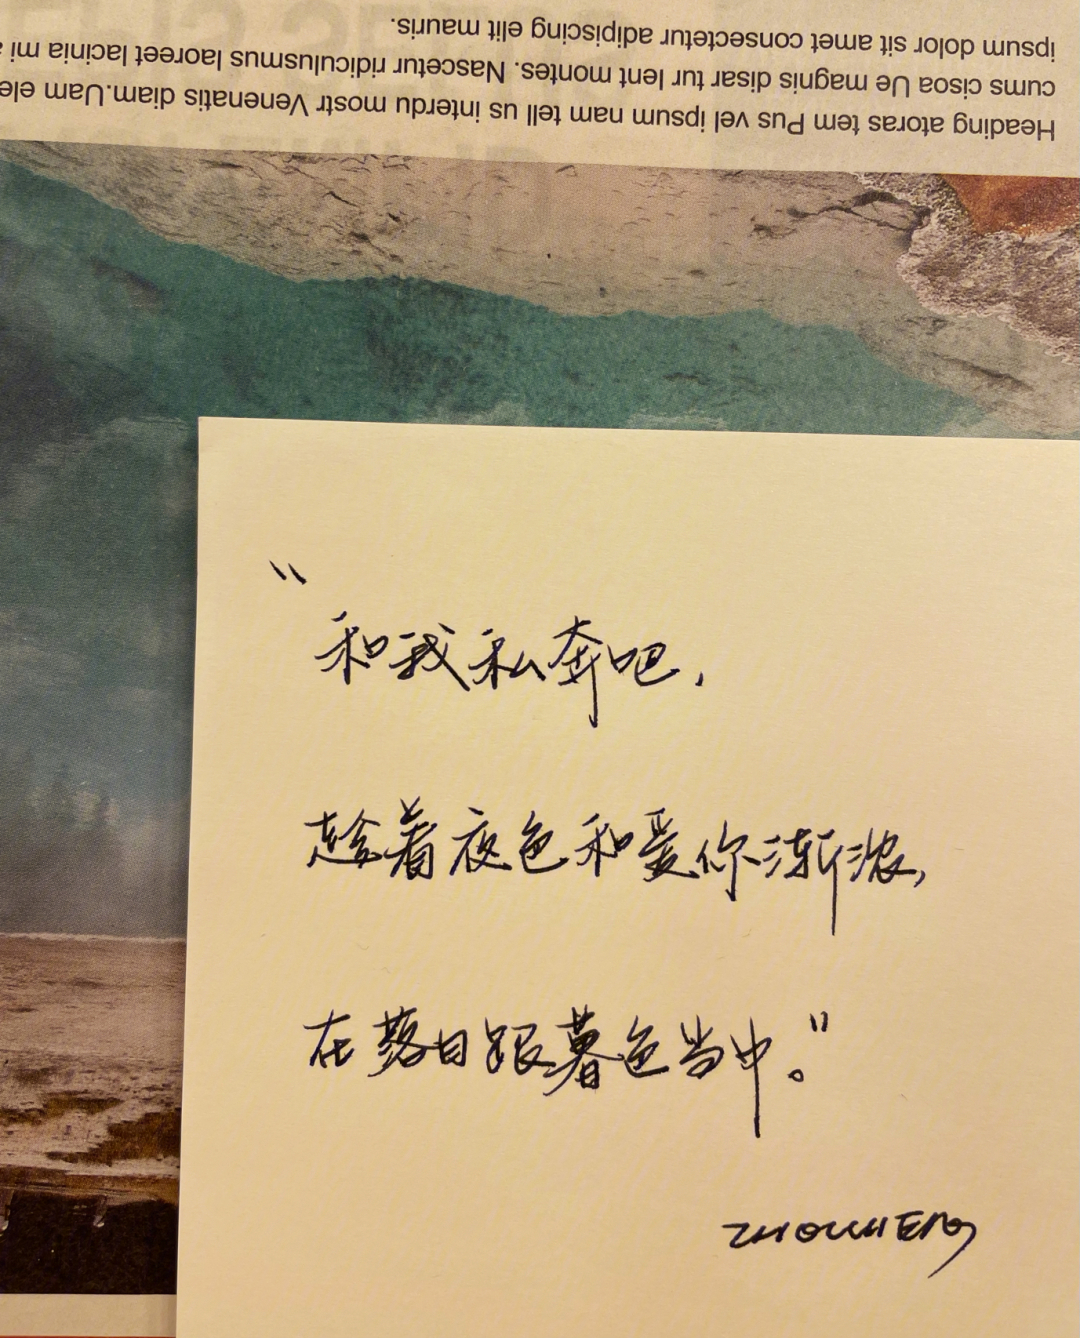 ipsum dolor sit amet consectetur adipiscing elit mauris.
cums cisoa Ue magnis disar tur lent montes. Nascetur ridiculusmus laoreet lacinia mi
Heading atoras tem Pus vel ipsum nam tell us interdu mostr Venenatis diam.Uam
“和我私奔吧，
趁着夜色和爱你渐浓，
在落日跟暮色当中。”
ZHOUCHENG